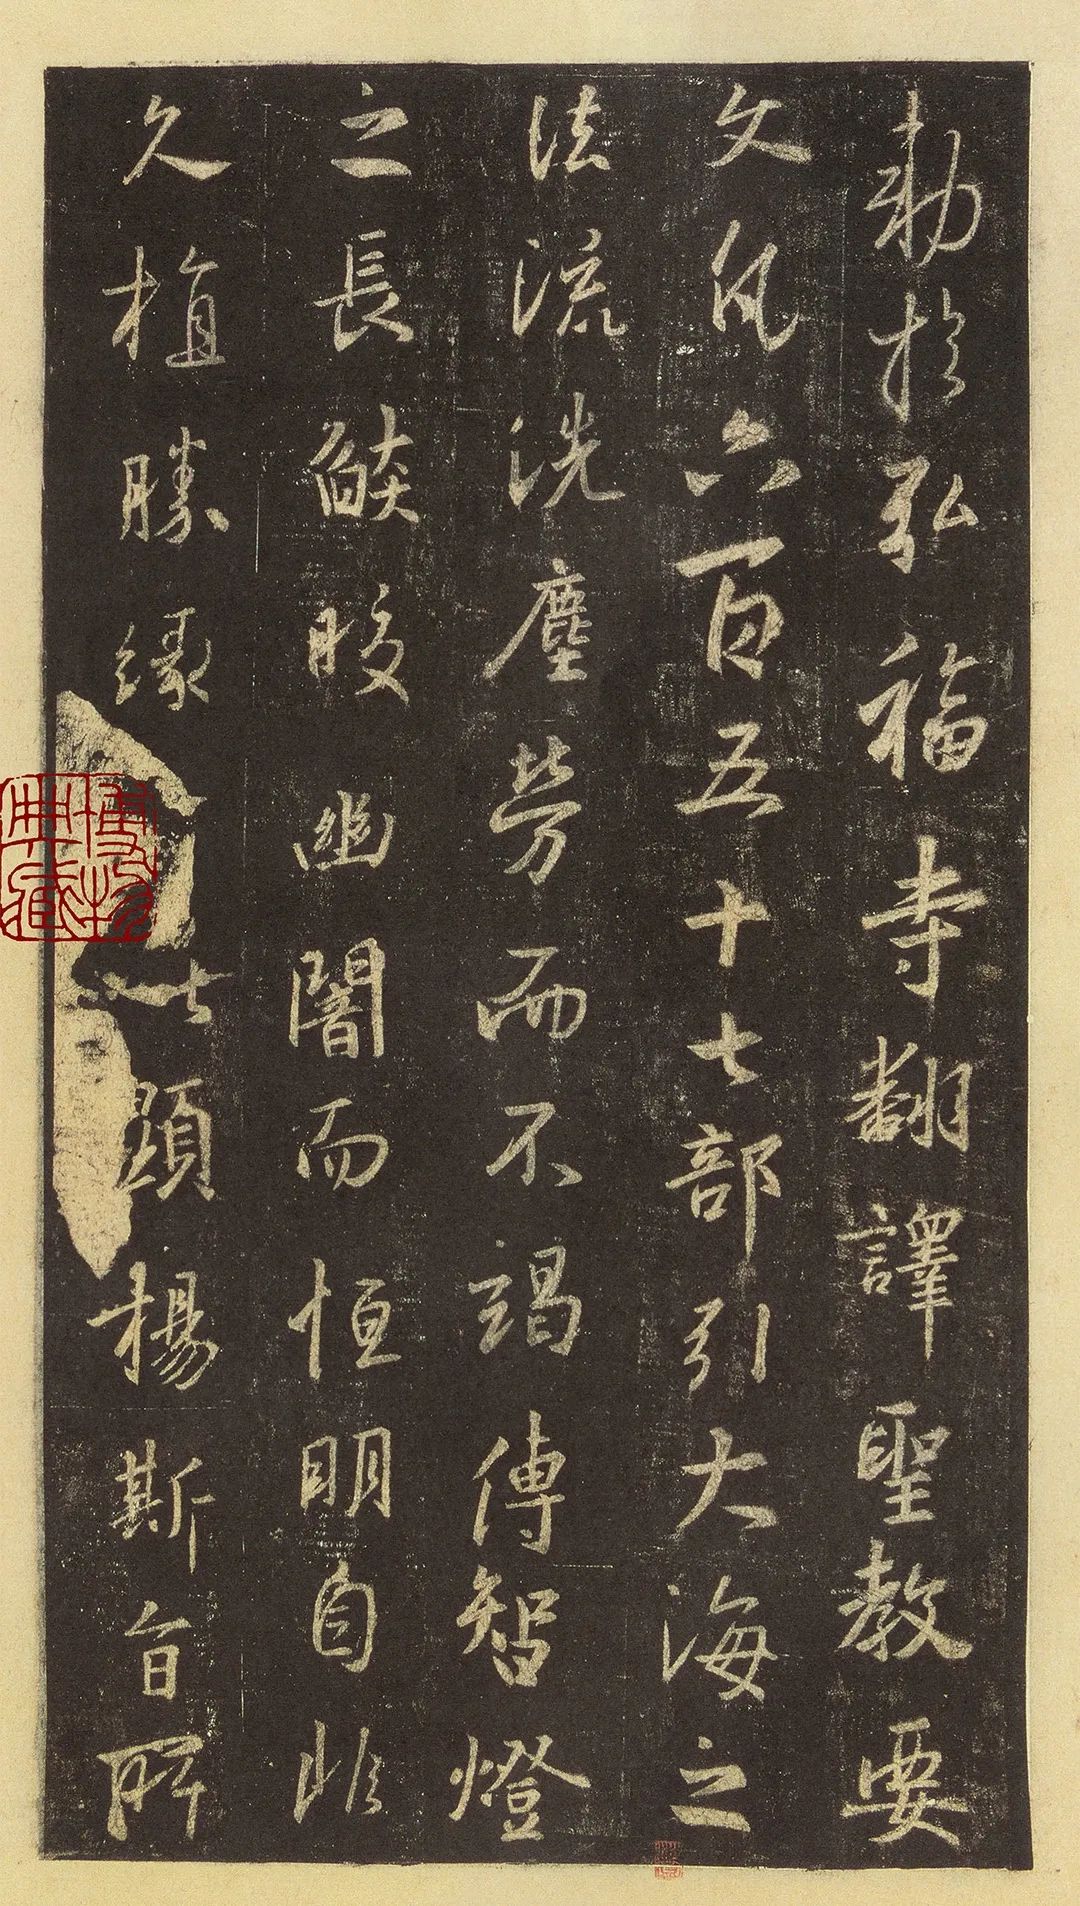 勅於弘福寺翻譯聖教要
文凡六百五十七部引大海之
法流洗塵勞而不竭傳智燈
之長燄晈幽闇而恒明自非
久植勝緣以顯揚斯旨所
博物典藏